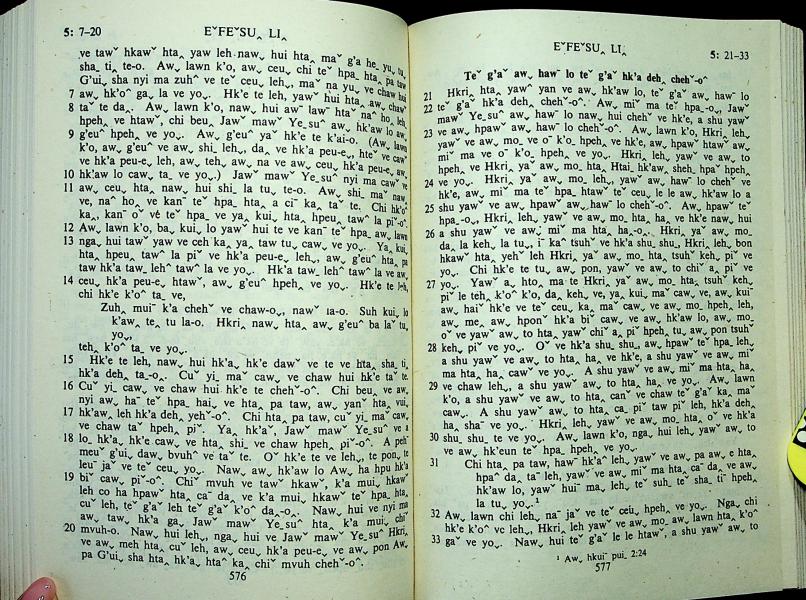 5: 7–20
EˇFEˇSU‸ LI‸
ve tawˇ hkawˇ hta‸ yaw leh naw˯ hui hta‸ maˇ g'a he
G'ui˯ sha nyi ma zuhˇ ve teˇ ceu˯ leh˯, maˇ na yu˯ ve chaw hui
7 aw˯ hk'aˇ ga˯ la ve yo˯. Hk'e te leh, yawˇ hui hta‸
8 taˇ te da˯. Aw˯ lawn k'o, naw˯ hui awˉ lawˉ htaˇ naˇ ho˯ leh
hpeh˯ ve htawˇ, chi beu˯ Jawˇ mawˇ Ye_suˆ aw˯ hk'aw lo aw˯
9 g'euˆ hpeh˯ ve yo˯. Aw˯ g'euˆ yaˇ hk'e te k'ai-o. (Aw˯ lawn
k'o, aw˯ g'euˆ ve aw˯ shi_ leh˯, da˯ ve hk'a peu-e˯, hteˇ ve cawˇ
ve hk'a peu-e˯ leh, aw˯ teh˯ aw˯ na ve aw˯ ceu˯ hk'a peu-e˯
10 hk'aw lo caw˯ ta˯ ve yo˯.) Jawˇ mawˇ Ye_suˆ nyi ma cawˇ ve
11 aw˯ ceu˯ hta‸ naw˯ hui shi_ la tu˯ te-o. Aw˯ shi_ maˇ naw˯
ve, naˆ ho˯ ve kanˉ teˇ hpa_ hta‸ a ciˆ ka‸ taˇ te. Chi hk'oˆ
ka‸, kanˉ oˇ ve teˇ hpa_ ve ya‸ kui˯ hta‸ hpeu˯ tawˆ la piˇ-oˆ.
12 Aw˯ lawn k'o, ba˯ kui˯ lo yawˇ hui te ve kanˉ teˇ hpa_ aw˯ lawn
13 nga˯ hui tawˇ yaw ve ceh ka‸ ya‸ taw tu˯ caw˯ ve yo˯. Ya‸ kui˯
hta‸ hpeu˯ tawˆ la piˇ ve hk'a peu-e˯ leh, aw˯ g'euˆ hta‸ pa
taw hk'a taw_ lehˆ tawˆ la ve yo˯. Hk'a taw_ lehˆ tawˆ la ve aw˯
14 ceu˯ hk'a peu-e˯ htawˇ, aw˯ g'euˆ hpeh˯ ve yo˯. Hk'e te leh,
chi hk'e k'oˆ ta˯ ve,
Zuh˯ muiˇ k'a chehˇ ve chaw-o˯, nawˇ ta-o. Suh kui˯ lo
k'aw˯ te‸ tu la-o. Hkri˯ naw˯ hta‸ aw˯ g'euˆ ba laˇ tu˯
yo˯,
teh_ k'oˆ ta˯ ve yo˯.
15 Hk'e te leh, naw˯ hui hk'a˯ hk'e dawˇ ve te ve hta‸ sha_ ti_
hk'a deh‸ ta_-o˯. Cuˇ yi_ maˇ caw˯ ve chaw hui hk'e taˇ te.
16 Cuˇ yi_ caw˯ ve chaw hui hk'e te chehˇ-oˆ. Chi beu˯ ve aw˯
nyi aw˯ haˉ teˇ hpa_ hai˯ ve hta‸ pa taw, aw˯ yanˆ hta‸ vui˯
17 hk'aw‸ leh hk'a deh‸ yehˇ-oˆ. Chi hta‸ pa taw, cuˇ yi_ maˇ caw˯
ve chaw taˇ hpeh‸ piˇ. Ya‸ hk'aˇ, Jawˇ mawˇ Ye_suˆ ve a
18 lo_ hk'a˯ hk'e caw˯ ve hta‸ shi_ ve chaw hpeh‸ piˇ-oˆ. A pehˉ
meuˇ g'ui˯ daw‸ bvuhˆ ve taˇ te. Oˇ hk'e te ve leh˯, te pon_ te
leuˉ jaˇ ve teˇ ceu˯ yo˯. Naw˯ aw˯ hk'aw lo Aw˯ ha hpu hk'a
19 biˇ caw˯ piˇ-oˆ. Chiˇ mvuh ve tawˇ hkawˇ, k'a mui˯ hkawˇ
leh co ha hpawˇ hta‸ caˉ da˯ ve k'a mui˯ hkawˇ teˇ hpa_ hta‸
cuˇ leh, teˇ g'aˇ leh teˇ g'aˇ k'oˆ da‸-o‸. Naw˯ hui ve nyi ma
aw˯ taw‸ hk'a ga‸ Jawˇ mawˇ Ye_suˆ hta‸ k'a mui˯ chiˇ
20 mvuh-o. Naw˯ hui leh˯, nga˯ hui ve Jawˇ mawˇ Ye_suˆ Hkri˯
ve aw˯ meh hta‸ cuˇ leh, aw˯ ceu˯ hk'a peu-e˯ ve aw˯ pon Aw˯
pa G'ui˯ sha hta‸ hk'a˯ htaˆ ka‸ chiˇ mvuh chehˇ-oˆ.
576
EˇFEˇSU‸ LI‸
5: 21–33
Teˇ g'aˇ aw˯ hawˉ lo teˇ g'aˇ hk'a deh‸ chehˇ-oˆ
21 Hkri˯ hta‸ yawˆ yan ve aw˯ hk'aw lo, teˇ g'aˇ aw˯ hawˉ lo
22 teˇ g'aˇ hk'a deh‸ chehˇ-oˆ. Aw˯ miˇ ma teˇ hpa_-o˯, Jawˇ
mawˇ Ye_suˆ aw˯ hawˉ lo naw˯ hui chehˇ ve hk'e, a shu yawˇ
23 ve aw˯ hpawˇ aw˯ hawˉ lo chehˇ-oˆ. Aw˯ lawn k'o, Hkri˯ leh˯
yawˇ ve aw˯ mo_ ve oˇ k'o_ hpeh˯ ve hk'e, aw˯ hpawˇ htawˇ aw˯
miˇ ma ve oˇ k'o_ hpeh˯ ve yo˯. Hkri˯ leh˯ yawˇ ve aw˯ to
hpeh˯ ve Hkri˯ yaˇ aw˯ mo_ hta‸ Htai_ hk'aw‸ sheh_ hpaˇ hpeh˯
24 ve yo˯. Hkri˯ yaˇ aw˯ mo_ leh˯, yawˇ aw˯ hawˉ lo chehˇ ve
hk'e, aw˯ miˇ ma teˇ hpa_ htawˇ teˇ ceu˯ le le aw˯ hk'aw lo a
25 shu yawˇ ve aw˯ hpawˇ aw˯ hawˉ lo chehˇ-oˆ. Aw˯ hpawˇ teˇ
hpa_-o˯, Hkri˯ leh˯ yawˇ ve aw˯ mo_ hta‸ ha˯ ve hk'e naw˯ hui
26 a shu yawˇ ve aw˯ miˇ ma hta‸ ha˯-o˯. Hkri˯ yaˇ aw˯ mo_
da_ la keh_ la tu˯, iˉ kaˆ tsuhˇ ve hk'a shu_ shu_ Hkri˯ leh˯ bon
hkawˇ hta‸ yehˇ leh Hkri˯ yaˇ aw˯ mo_ hta‸ tsuhˇ keh_ piˇ ve
yo˯. Chi hk'e te tu˯, aw˯ pon˯ yawˇ ve aw˯ to chiˇ a‸ piˇ ve
27 yo˯. Yawˇ a‸ hto_ ma te Hkri˯ yaˇ aw˯ mo_ hta‸ tsuhˇ keh_
piˇ le teh_ k'oˆ k'o, da_ keh_ ve, ya‸ kui˯ maˇ caw˯ ve, aw˯ kuiˉ
aw˯ haiˇ hk'e ve teˇ ceu˯ ka‸ maˇ caw˯ ve aw˯ mo_ hpeh˯ leh,
aw˯ me‸ aw˯ hponˇ hk'a bi caw˯ ve aw˯ hk'aw lo, aw˯ mo_
oˇ ve yawˇ aw˯ to hta‸ yawˇ chiˇ a‸ piˇ hpeh‸ tu˯ aw˯ pon tsuhˇ
28 keh_ piˇ ve yo˯. Oˇ ve hk'a shu_ shu_ aw˯ hpawˇ teˇ hpa_ leh˯
a shu yawˇ ve aw˯ to hta‸ ha˯ ve hk'e, a shu yawˇ ve aw˯ miˇ
ma hta‸ ha˯ caw˯ ve yo˯. A shu yawˇ ve aw˯ miˇ ma hta‸ ha˯
29 ve chaw leh˯, a shu yawˇ ve aw˯ to hta‸ ha˯ ve yo˯. Aw˯ lawn
k'o, a shu yawˇ ve aw˯ to hta‸ canˇ ve chaw teˇ g'aˇ ka‸ maˇ
caw˯. A shu yawˇ ve aw˯ to hta‸ ca_ piˇ taw piˇ leh, hk'a deh‸
ha˯ shaˉ ve yo˯. Hkri˯ leh˯ yawˇ ve aw˯ mo_ hta‸ oˇ ve hk'a
30 shu_ shu_ te ve yo˯. Aw˯ lawn k'o, nga˯ hui leh˯ yawˇ aw˯ to
ve aw˯ hk'eun teˇ hpa_ hpeh˯ ve yo˯.
31 Chi hta‸ pa taw, hawˉ hk'aˇ leh˯ yawˇ ve aw˯ pa aw˯ e hta‸
hpaˆ da‸ taˇ leh, yawˇ ve aw˯ miˇ ma hta‸ caˉ da˯ ve aw˯
hk'aw lo, yawˇ huiˉ ma_ leh˯ teˇ suh_ teˇ sha_ tiˇ hpeh‸
la tu˯ yo˯.¹
32 Aw˯ lawn chi leh˯ naˉ jaˇ ve teˇ ceu˯ hpeh˯ ve yo˯. Nga˯ chi
hk'e k'oˆ ve leh˯, Hkri˯ leh yawˇ ve aw˯ mo_ aw˯ lawn hta‸ k'oˆ
33 gaˇ ve yo˯. Naw˯ hui teˇ g'aˇ le le htawˇ, a shu yawˇ aw˯ to
¹ Aw˯ hkuiˉ pui_ 2:24
577